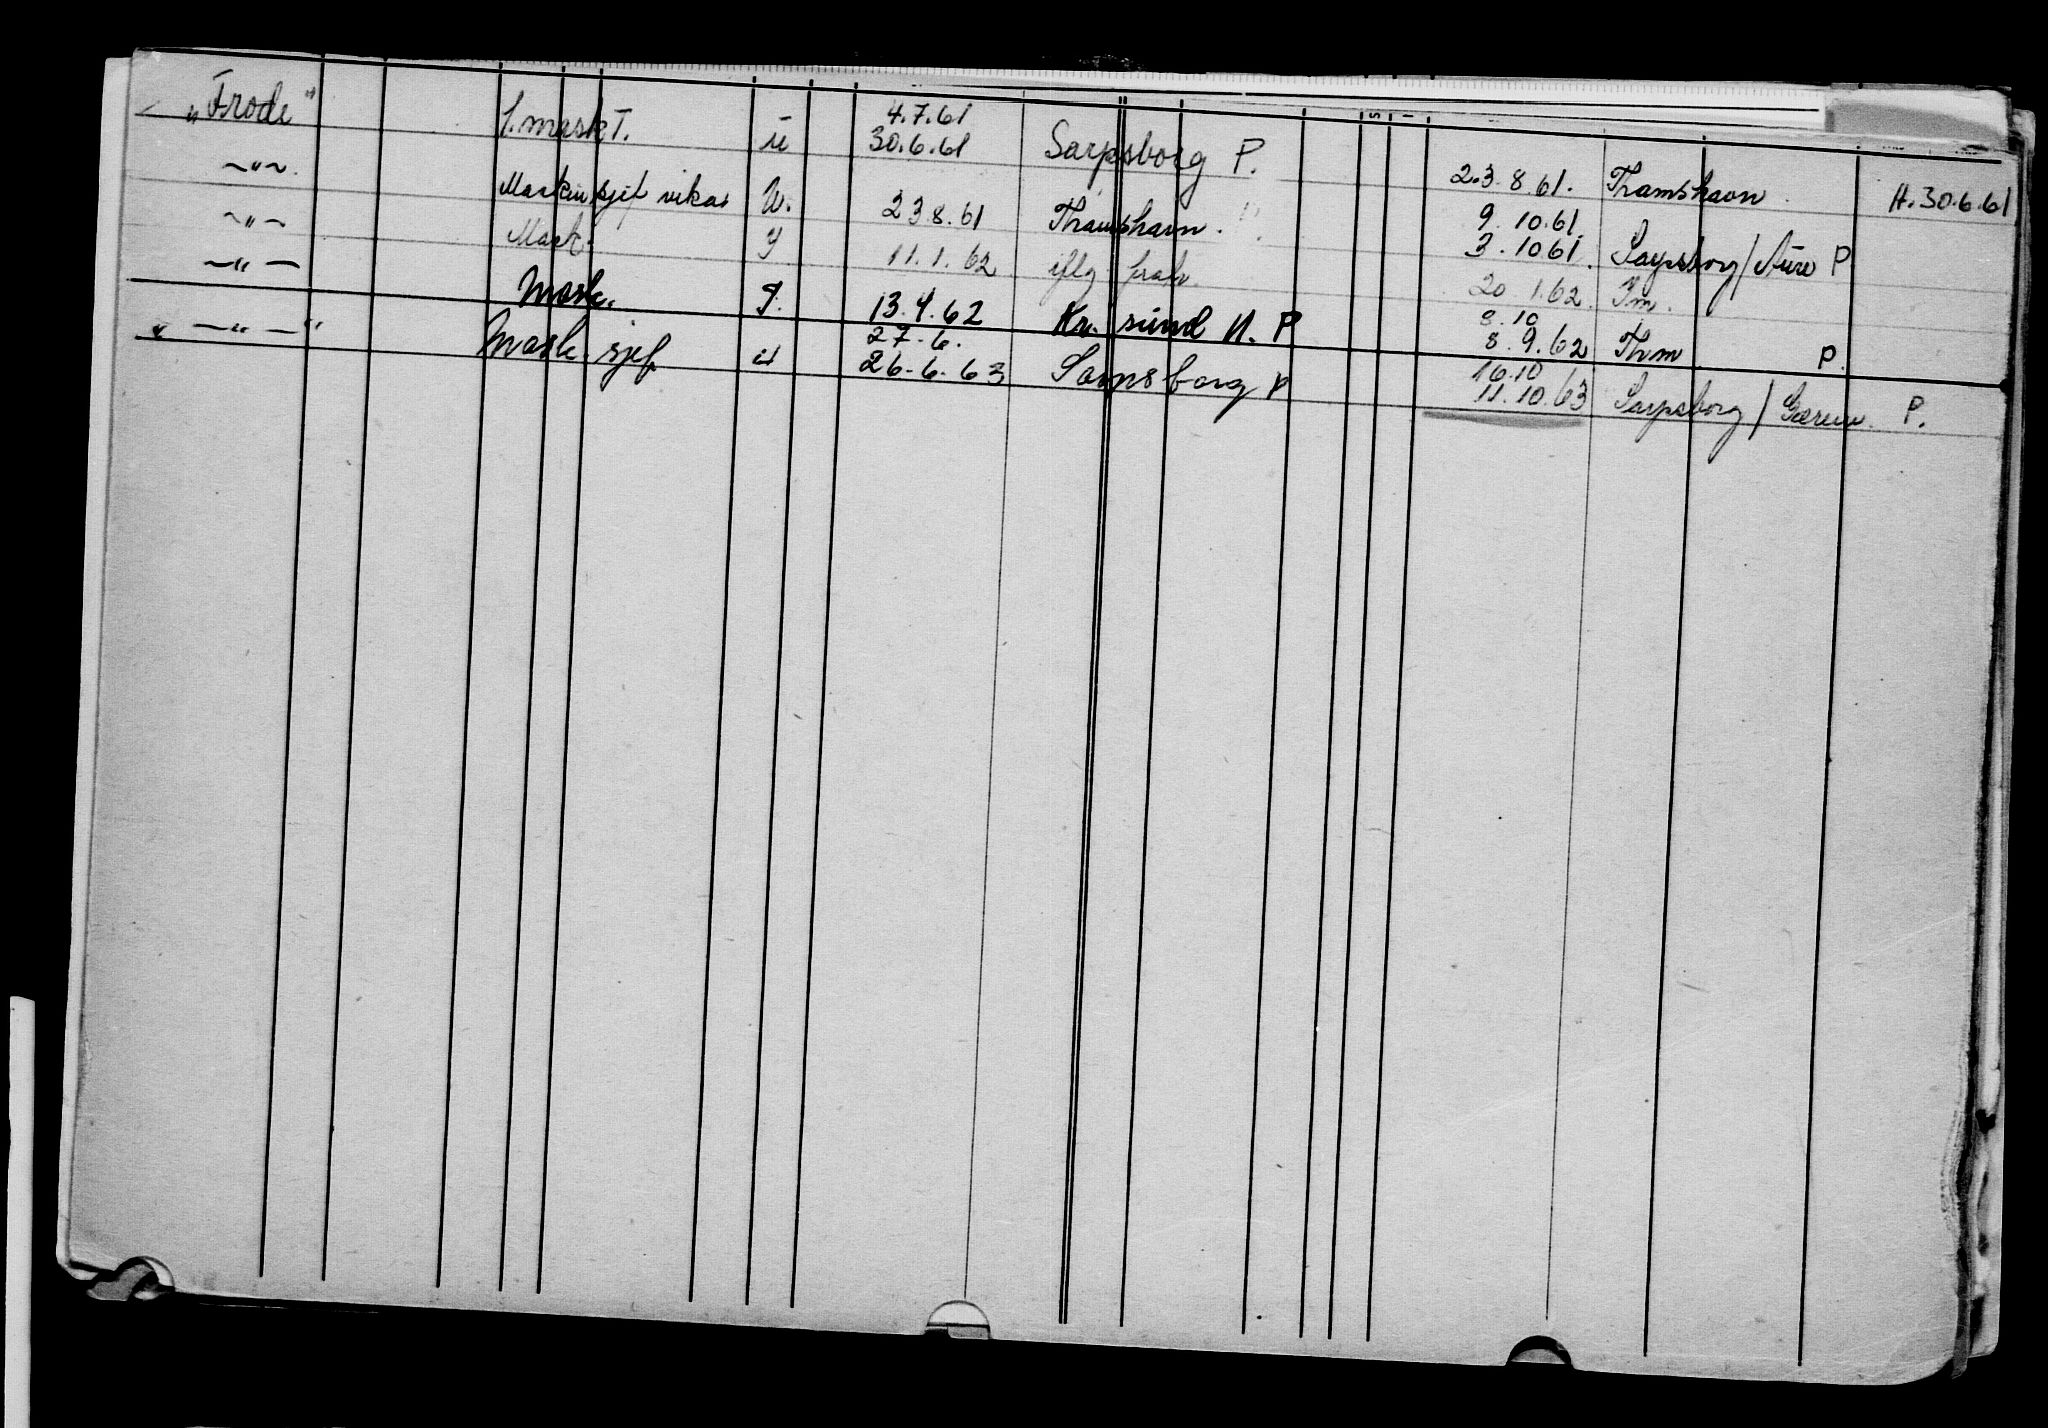 "Frode" 1. mask T. U 4.7.61
30.6.61 Sarpsborg P. 23.8.61. Thamshavn. H. 30.6.61
—"— Maskinsjef vikar U. 23.8.61 Thamshavn. 9.10.61.
3.1061. Sarpsborg/Aure P
—"— Mask. 11.1.62 iflg. 20 1.62.
—"— Mask. 13.4.62 Kr.sund N. P 8.10
8.9.62 Thm P.
—"— Mask. sjef 27.6.
26.6.63 Sarpsborg P 16.10
11.10.63 Sarpsborg / P.